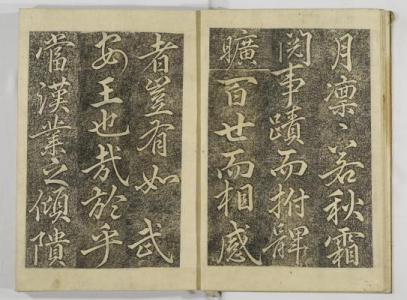 月凛〻若秋霜
閲事蹟而拊髀
曠百世而相感
者豈有如武
安王也哉於乎
當漢業之傾隤